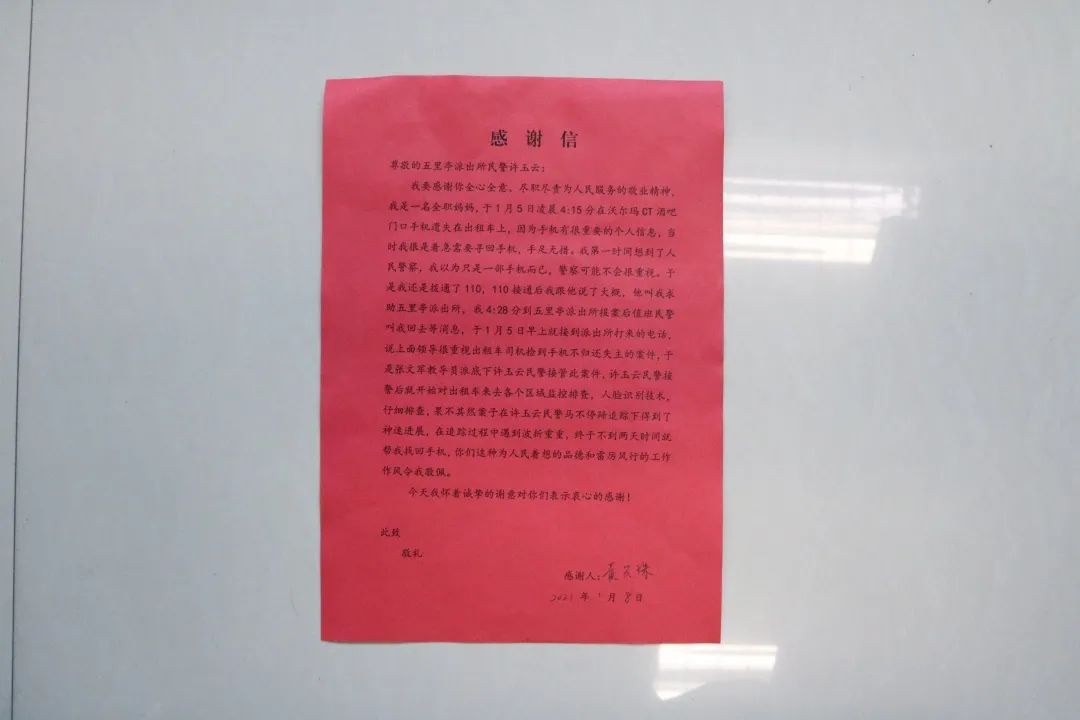 感谢信
尊敬的五里亭派出所民警许玉云：
我要感谢你全心全意、尽职尽责为人民服务的敬业精神，
我是一名全职妈妈，于1月5日凌晨4:15分在沃尔玛CT酒吧
门口手机遗失在出租车上，因为手机有很重要的个人信息，当
时我很是着急需要寻回手机，手足无措。我第一时间想到了人
民警察，我以为只是一部手机而已，警察可能不会很重视。于
是我还是拨通了110，110接通后我跟他说了大概，他叫我求
助五里亭派出所，我4:28分到五里亭派出所报案后值班民警
叫我回去等消息，于1月5日早上就接到派出所打来的电话，
说上面领导很重视出租车司机捡到手机不归还失主的案件，于
是张文军教导员派底下许玉云民警接管此案件，许玉云民警接
警后就开始对出租车来去各个区域监控排查，人脸识别技术，
仔细排查，果不其然案子在许玉云民警马不停蹄追踪下得到了
神速进展，在追踪过程中遇到波折重重，终于不到两天时间就
帮我找回手机，你们这种为人民着想的品德和雷厉风行的工作
作风令我敬佩。
今天我怀着诚挚的谢意对你们表示衷心的感谢！
此致
敬礼
感谢人：
2021年1月8日